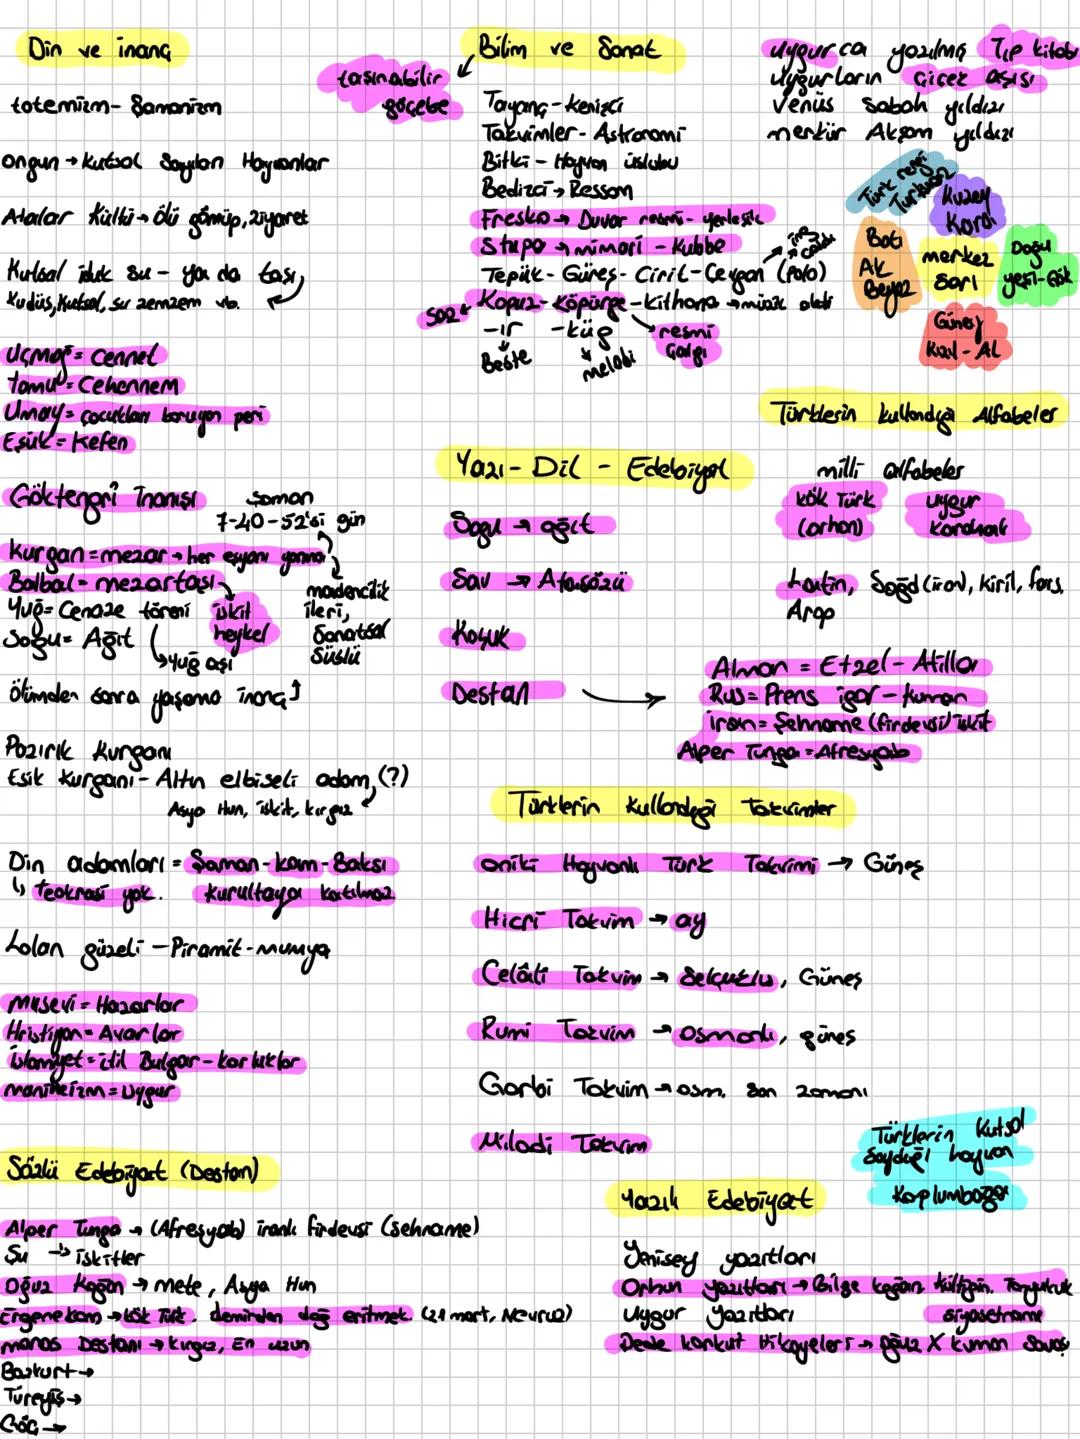 Din ve inanç
totemizm - Şamanizm
ongun → kutsal Sayılan Hayvanlar
Atalar Kültü → ölü gömüp, ziyaret
Kutsal ıduk su - ya da taşı
Kudüs, Kutsal, su zemzem vb.
Uçmağ = Cennet
tamu = Cehennem
Umay = çocukları koruyan peri
Eşük = Kefen
Göktengri İnanışı
Şaman
7-40-52'si gün
Kurgan = mezar → her eşyanı yanına
Balbal = mezartaşı
Yuğ = Cenaze töreni
Sogu = Ağıt
yuğ aşı
iskit
heykel
madencilik
ileri,
Sanatsal
Süslü
Ölümden sonra yaşama inanç
Pazırık Kurganı
Esik Kurganı - Altın elbiseli adam (?)
Asya Hun, iskit, kırgız
Din adamları = Şaman - kam - Baksı
teokrasi yok. kurultaya katılmaz
Lolan güzeli - Piramit - mumya
musevi = Hazarlar
Hristiyan = Avarlar
islamiyet = itil Bulgar - karluklar
maniheizm = Uygur
Sözlü Edebiyat (Destan)
Alper Tunga → (Afresyab) iranlı firdevsi (Şehname)
Şu → iskitler
Oğuz Kağan → mete, Asya Hun
Ergenekon → kök Türk. demirden dağ eritmek. (21 mart, Nevruz)
manas Destanı → kırgız, En uzun
Bozkurt →
Türeyiş →
Göç →
Bilim ve Sanat
taşınabilir
göçebe
Tayanç - Kenişçi
Takvimler - Astronomi
Bitki - Hayvan üslubu
Bedizci → Ressam
Fresko → Duvar resmi - yerleşik
Stupa → mimari - Kubbe
Tepük - Güreş - Cirit - Çevgan (Polo)
Kopuz - Köpürge - Kithara → müzik aleti
saz
-ır -küğ
Beste
melodi
resmi
Çalgı
Yazı - Dil - Edebiyat
Sogu → ağıt
Sav → Atasözü
Koşuk
Destan →
Alman = Etzel - Atilla
Rus = Prens igor - kuman
iran = Şehname (firdevsi) iskit
Alper Tunga = Afresyab
Türklerin kullandığı takvimler
oniki Hayvanlı Türk Takvimi → Güneş
Hicri Takvim → ay
Celâli Takvim → Selçuklu, Güneş
Rumi Takvim → osmanlı, güneş
Garbi Takvim → osm. son zamanı
Miladi Takvim
Uygurca yazılmış Tıp kitabı
Uygurların Çiçek aşısı
Venüs sabah yıldızı
merkür Akşam yıldızı
Türk rengi
Turkuaz
Kuzey
Kara
Batı
Ak
Beyaz
merkez
sarı
Doğu
yeşil-Gök
Güney
kızıl - Al
Türklerin kullandığı Alfabeler
milli alfabeler
kök Türk
(orhon)
uygur
Latin, Soğd (iran), kiril, fars,
Arap
Türklerin kutsal
saydığı hayvan
Kaplumbağa
Yazılı Edebiyat
Yenisey yazıtları
Orhun yazıtları → Bilge kağan, kültigin, Tonyukuk
Uygur yazıtları
siyasetname
Dede korkut Hikayeleri → oğuz X kuman savaş